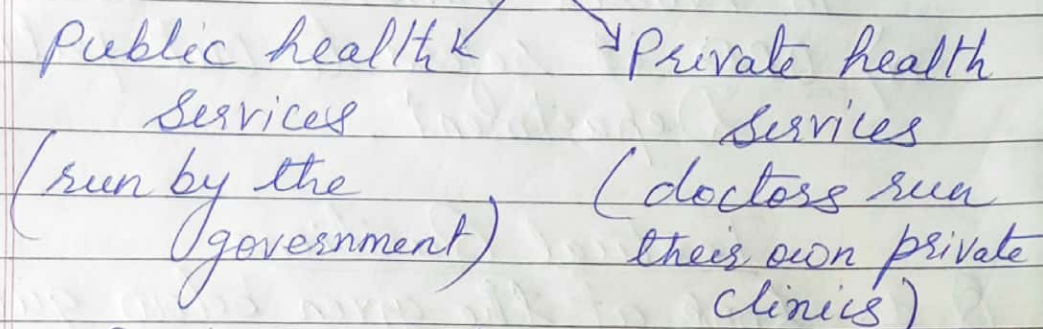 Public health
Services
(run by the
government)
Private health
services
(doctors run
their own private
clinics)